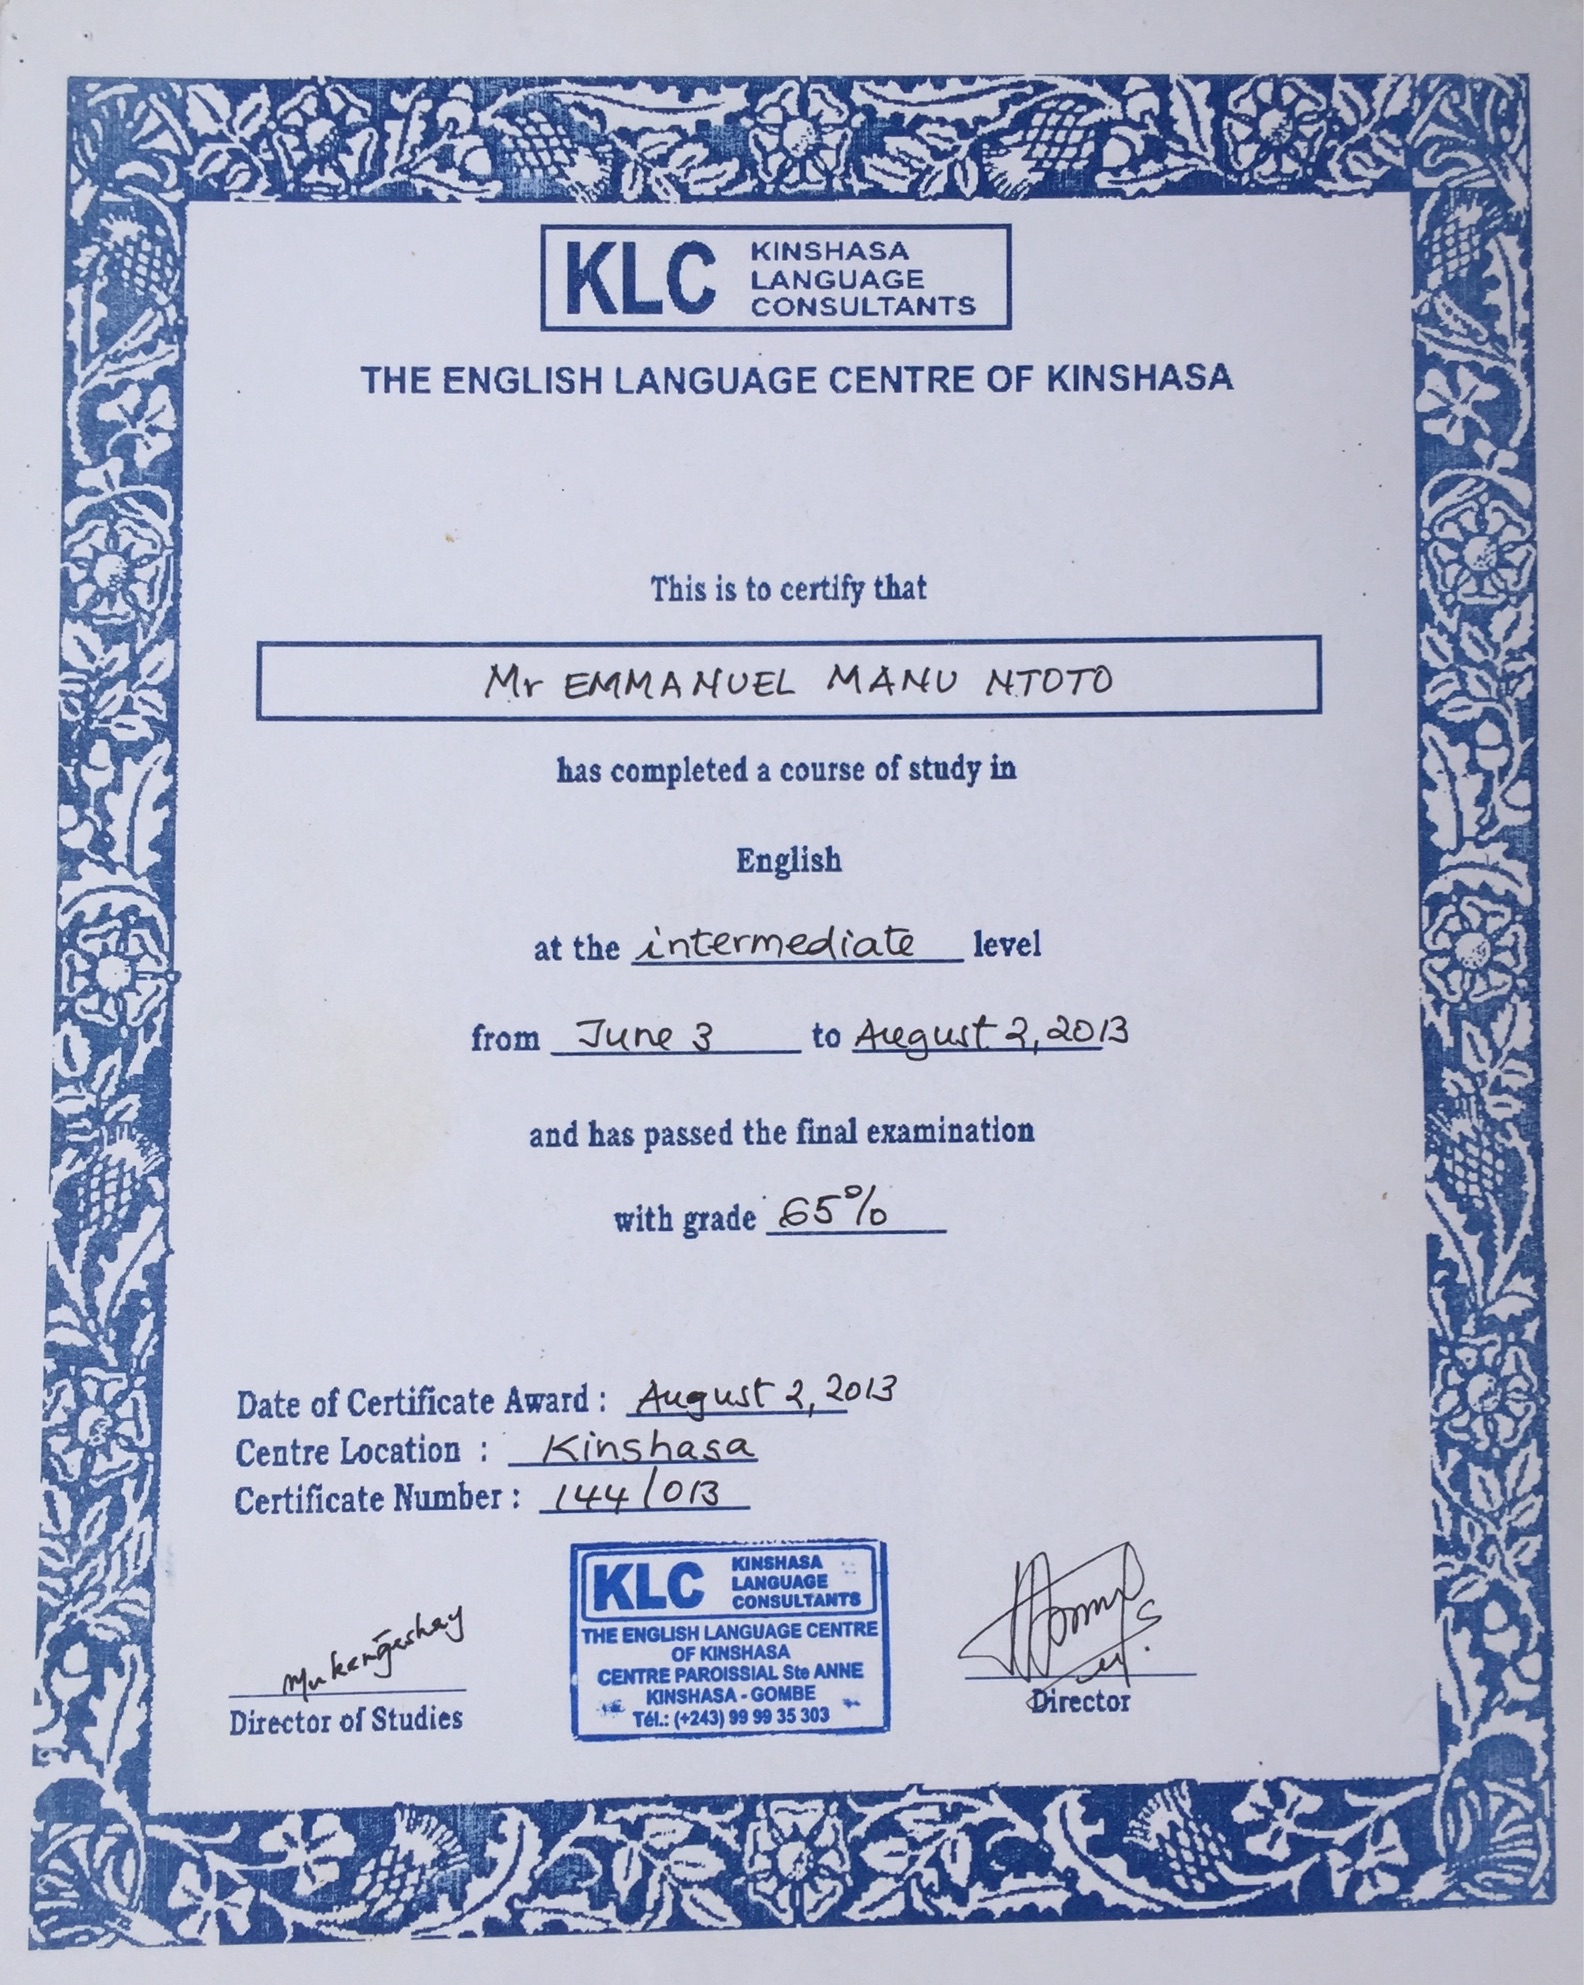 KLC KINSHASA
LANGUAGE
CONSULTANTS
THE ENGLISH LANGUAGE CENTRE OF KINSHASA
This is to certify that
Mr EMMANUEL MANU NTOTO
has completed a course of study in
English
at the intermediate level
from June 3 to August 2, 2013
and has passed the final examination
with grade 65%
Date of Certificate Award : August 2, 2013
Centre Location : Kinshasa
Certificate Number : 144/013
KLC KINSHASA
LANGUAGE
CONSULTANTS
THE ENGLISH LANGUAGE CENTRE
OF KINSHASA
CENTRE PAROISSIAL Ste ANNE
KINSHASA - GOMBE
Tél.: (+243) 99 99 35 303
Director of Studies
Director